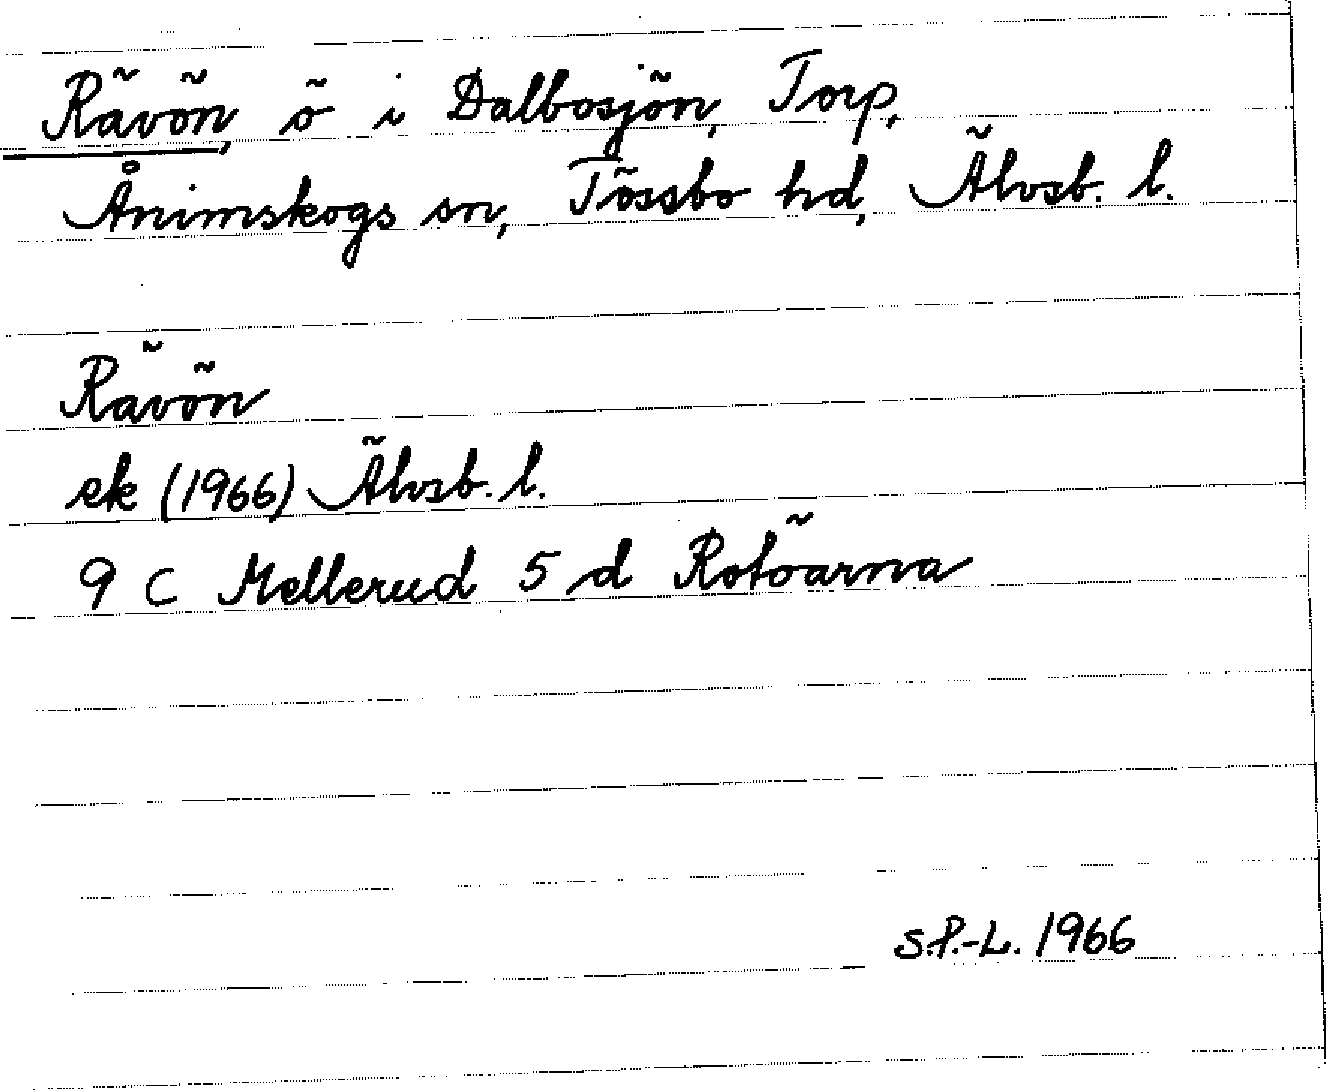 Rävön, ö i Dalbosjön, Torp,
Ånimskogs sn, Tössbo hd, Älvsb. l.
Rävön
ek (1966) Älvsb. l.
9 C Mellerud 5 d Rotöarna
S.P.-L. 1966